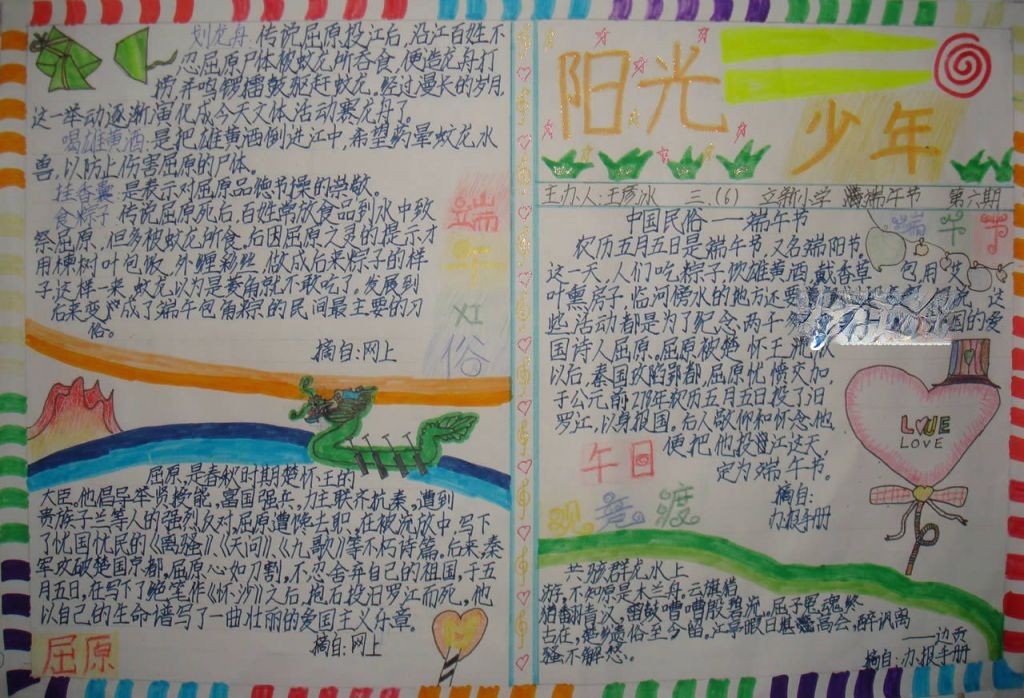 划龙舟:传说屈原投江后,沿江百姓不
忍屈原尸体被蚊龙所吞食,便造龙舟打
捞,并鸣锣擂鼓驱赶蚊龙。经过漫长的岁月,
这一举动逐渐演化成今天文体活动赛龙舟了。
喝雄黄酒:是把雄黄酒倒进江中,希望药晕蚊龙水
兽,以防止伤害屈原的尸体。
挂香囊 是表示对屈原品德节操的崇敬。
食粽子 传说屈原死后,百姓常放食品到水中致
祭屈原,但多被蚊龙所食,后因屈原之灵的提示才
用楝树叶包饭,外缠彩丝,做成后来粽子的样
子这样一来,蚊龙以为是菱角就不敢吃了。发展到
后来变成了端午包角粽的民间最主要的习
俗。
摘自:网上
端
午
习
俗
屈原,是春秋时期楚怀王的
大臣。他倡导举贤授能,富国强兵,力主联齐抗秦,遭到
贵族子兰等人的强烈反对,屈原遭馋去职,在被流放中,写下
了忧国忧民的《离骚》、《天问》、《九歌》等不朽诗篇。后来,秦
军攻破楚国京都,屈原心如刀割,不忍舍弃自己的祖国,于五
月五日,在写下了绝笔作《怀沙》之后,抱石投汨罗江而死,他
以自己的生命谱写了一曲壮丽的爱国主义乐章。
摘自:网上
屈原
阳光
少年
主办人:王彦冰 三.(6) 立新小学 端午节 第六期
中国民俗——端午节
端午节
农历五月五日是端午节,又名端阳节。
这一天,人们吃粽子,饮雄黄酒,戴香草 包用艾
叶熏房子,临河傍水的地方还要 这
些活动都是为了纪念两千 的爱
国诗人屈原。屈原被楚怀王流放
以后,秦国攻陷郢都,屈原忧愤交加,
于公元前278年农历五月五日投了汨
罗江,以身报国。后人敬仰和怀念他,
便把他投江这天,
定为端午节。
摘自:
办报手册
LOVE
LOVE
午日
观竞渡
共骇群龙水上
游,不知原是木兰舟。云旗猎
猎翻青汉,雷鼓嘈嘈殷碧流。屈子冤魂终
古在,楚乡遗俗至今留。江亭暇日堪高会,醉讽离
骚不解愁。
——边贡
摘自:办报手册